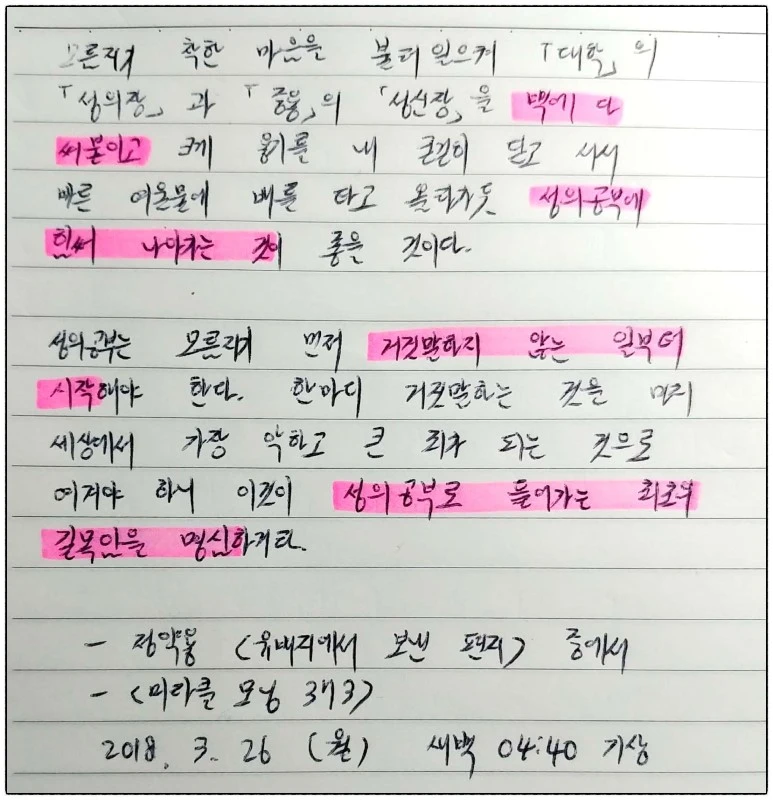 모름지기 착한 마음을 불러 일으켜 「대학」의
「성의장」과 「중용」의 「성신장」을 벽에 다
써붙이고 크게 용기를 내 굳건히 딛고 서서
빠른 여울물에 배를 타고 올라가듯 성의공부에
힘써 나아가는 것이 좋을 것이다.
성의공부는 모름지기 먼저 거짓말하지 않는 일부터
시작해야 한다. 한마디 거짓말하는 것을 마치
세상에서 가장 악하고 큰 죄가 되는 것으로
여겨야 하니 이것이 성의공부로 들어가는 최초의
길목임을 명심하거라.
- 정약용 <유배지에서 보낸 편지> 중에서
- <미라클 모닝 373>
2018. 3. 26 (월) 새벽 04:40 기상